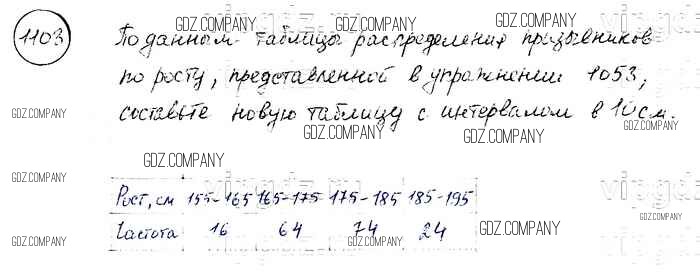 1103
По данным таблицы распределения призывников
по росту, представленной в упражнении 1053,
составьте новую таблицу с интервалом в 10 см.
Рост, см 155-165 165-175 175-185 185-195
Частота 16 64 74 24
GDZ.COMPANY
GDZ.COMPANY
GDZ.COMPANY
GDZ.COMPANY
GDZ.COMPANY
GDZ.COMPANY
GDZ.COMPANY
GDZ.COMPANY
GDZ.COMPANY
GDZ.COMPANY
GDZ.COMPANY
GDZ.COMPANY
GDZ.COMPANY
GDZ.COMPANY